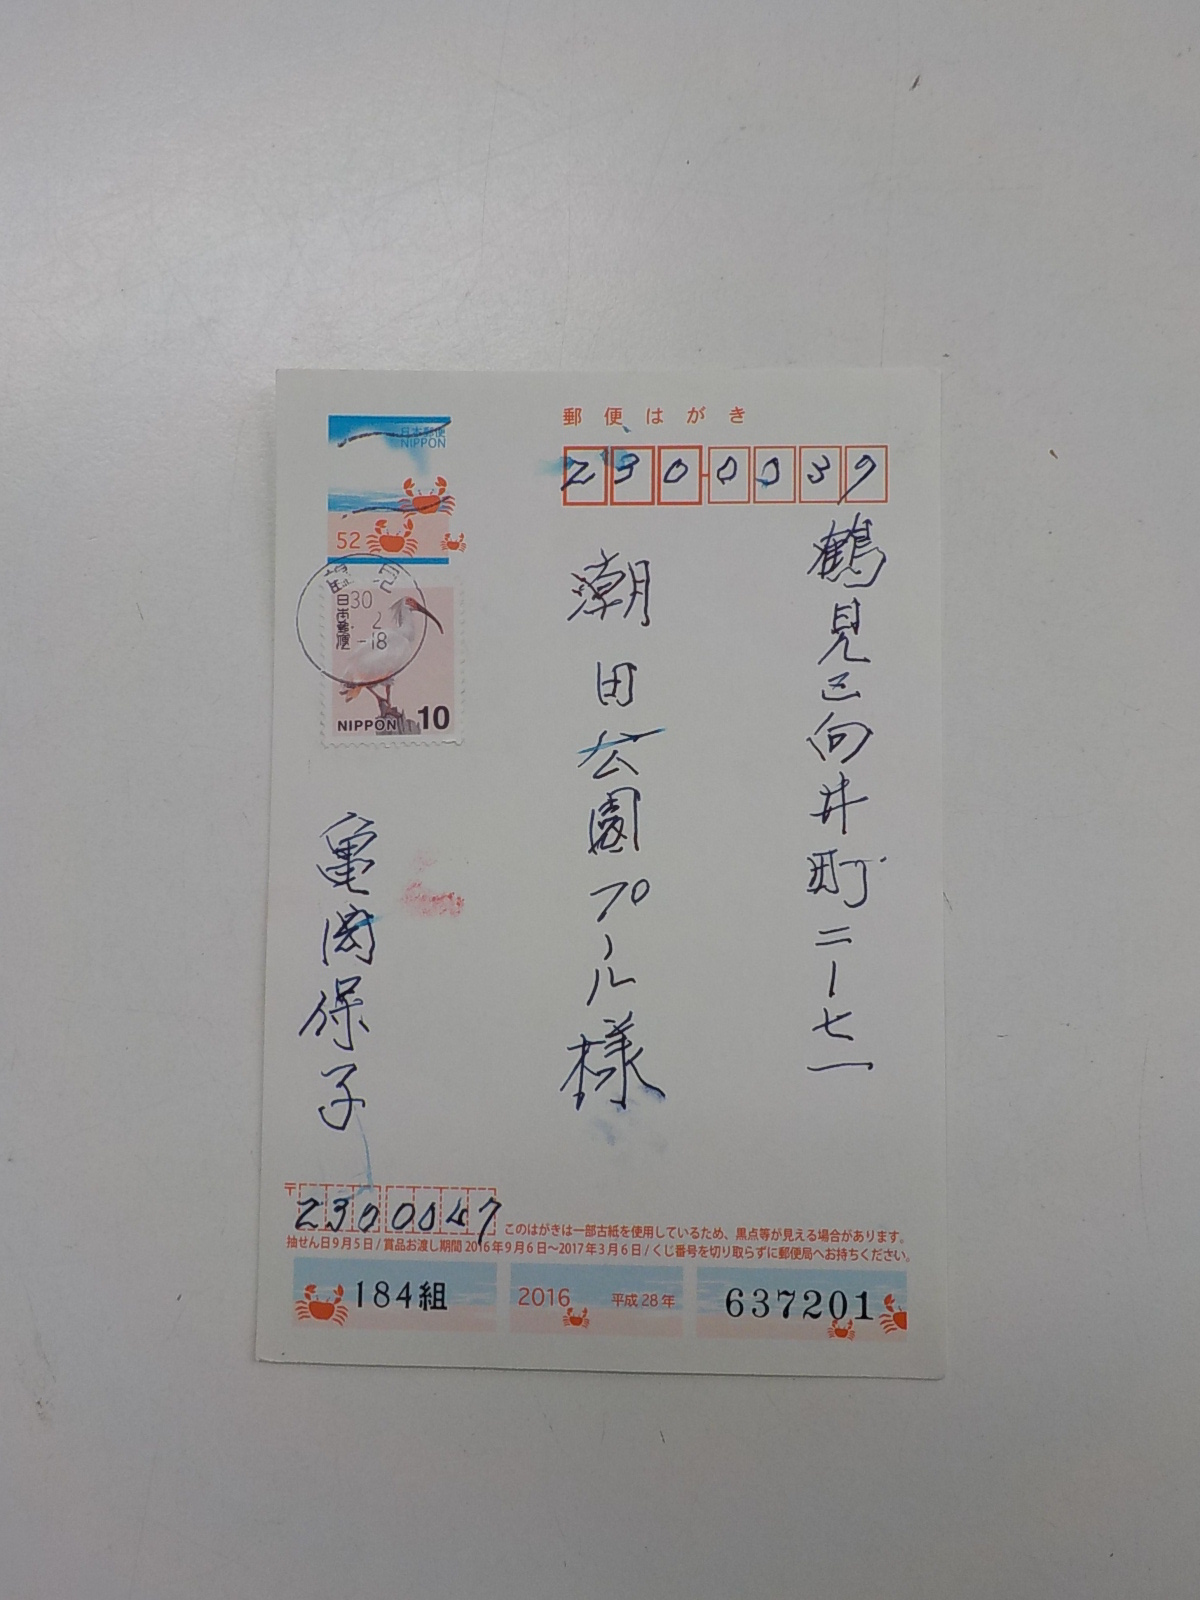 郵便はがき
2300039
鶴見区向井町二ー七一
潮田公園プール様
日本郵便
NIPPON
52
30
2
-18
日本郵便
NIPPON 10
亀岡保子
〒
2300047
このはがきは一部古紙を使用しているため、黒点等が見える場合があります。
抽せん日9月5日/賞品お渡し期間 2016年9月6日〜2017年3月6日/くじ番号を切り取らずに郵便局へお持ちください。
184組 2016 平成28年 637201